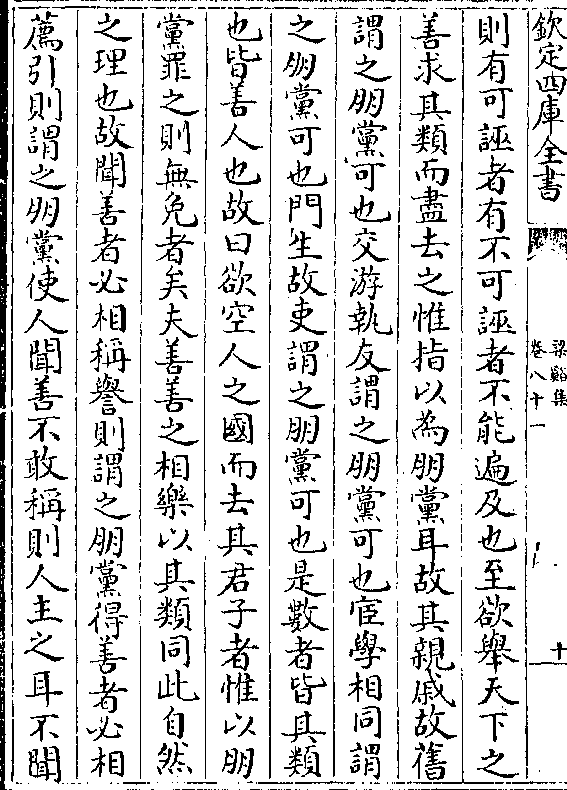 欽定四庫全書
梁谿集
卷八十一
十
則有可誣者有不可誣者不能遍及也至欲舉天下之
善求其類而盡去之惟指以為朋黨耳故其親戚故舊
謂之朋黨可也交游執友謂之朋黨可也宦學相同謂
之朋黨可也門生故吏謂之朋黨可也是數者皆其類
也皆善人也故曰欲空人之國而去其君子者惟以朋
黨罪之則無免者矣夫善善之相樂以其類同此自然
之理也故聞善者必相稱譽則謂之朋黨得善者必相
薦引則謂之朋黨使人聞善不敢稱則人主之耳不聞